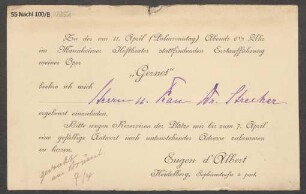 55 Nachl 100/B
Zu der am 11. April (Palmsonntag) Abends 6½ Uhr
im Mannheimer Hoftheater stattfindenden Erstaufführung
meiner Oper
„Gernot"
beehre ich mich
Herrn u. Frau Dr. Strecker
ergebenst einzuladen.
Bitte wegen Reservieren der Plätze mir bis zum 7. April
eine gefällige Antwort nach untenstehender Adresse zukommen
zu lassen.
Eugen d'Albert
Heidelberg,
7/4